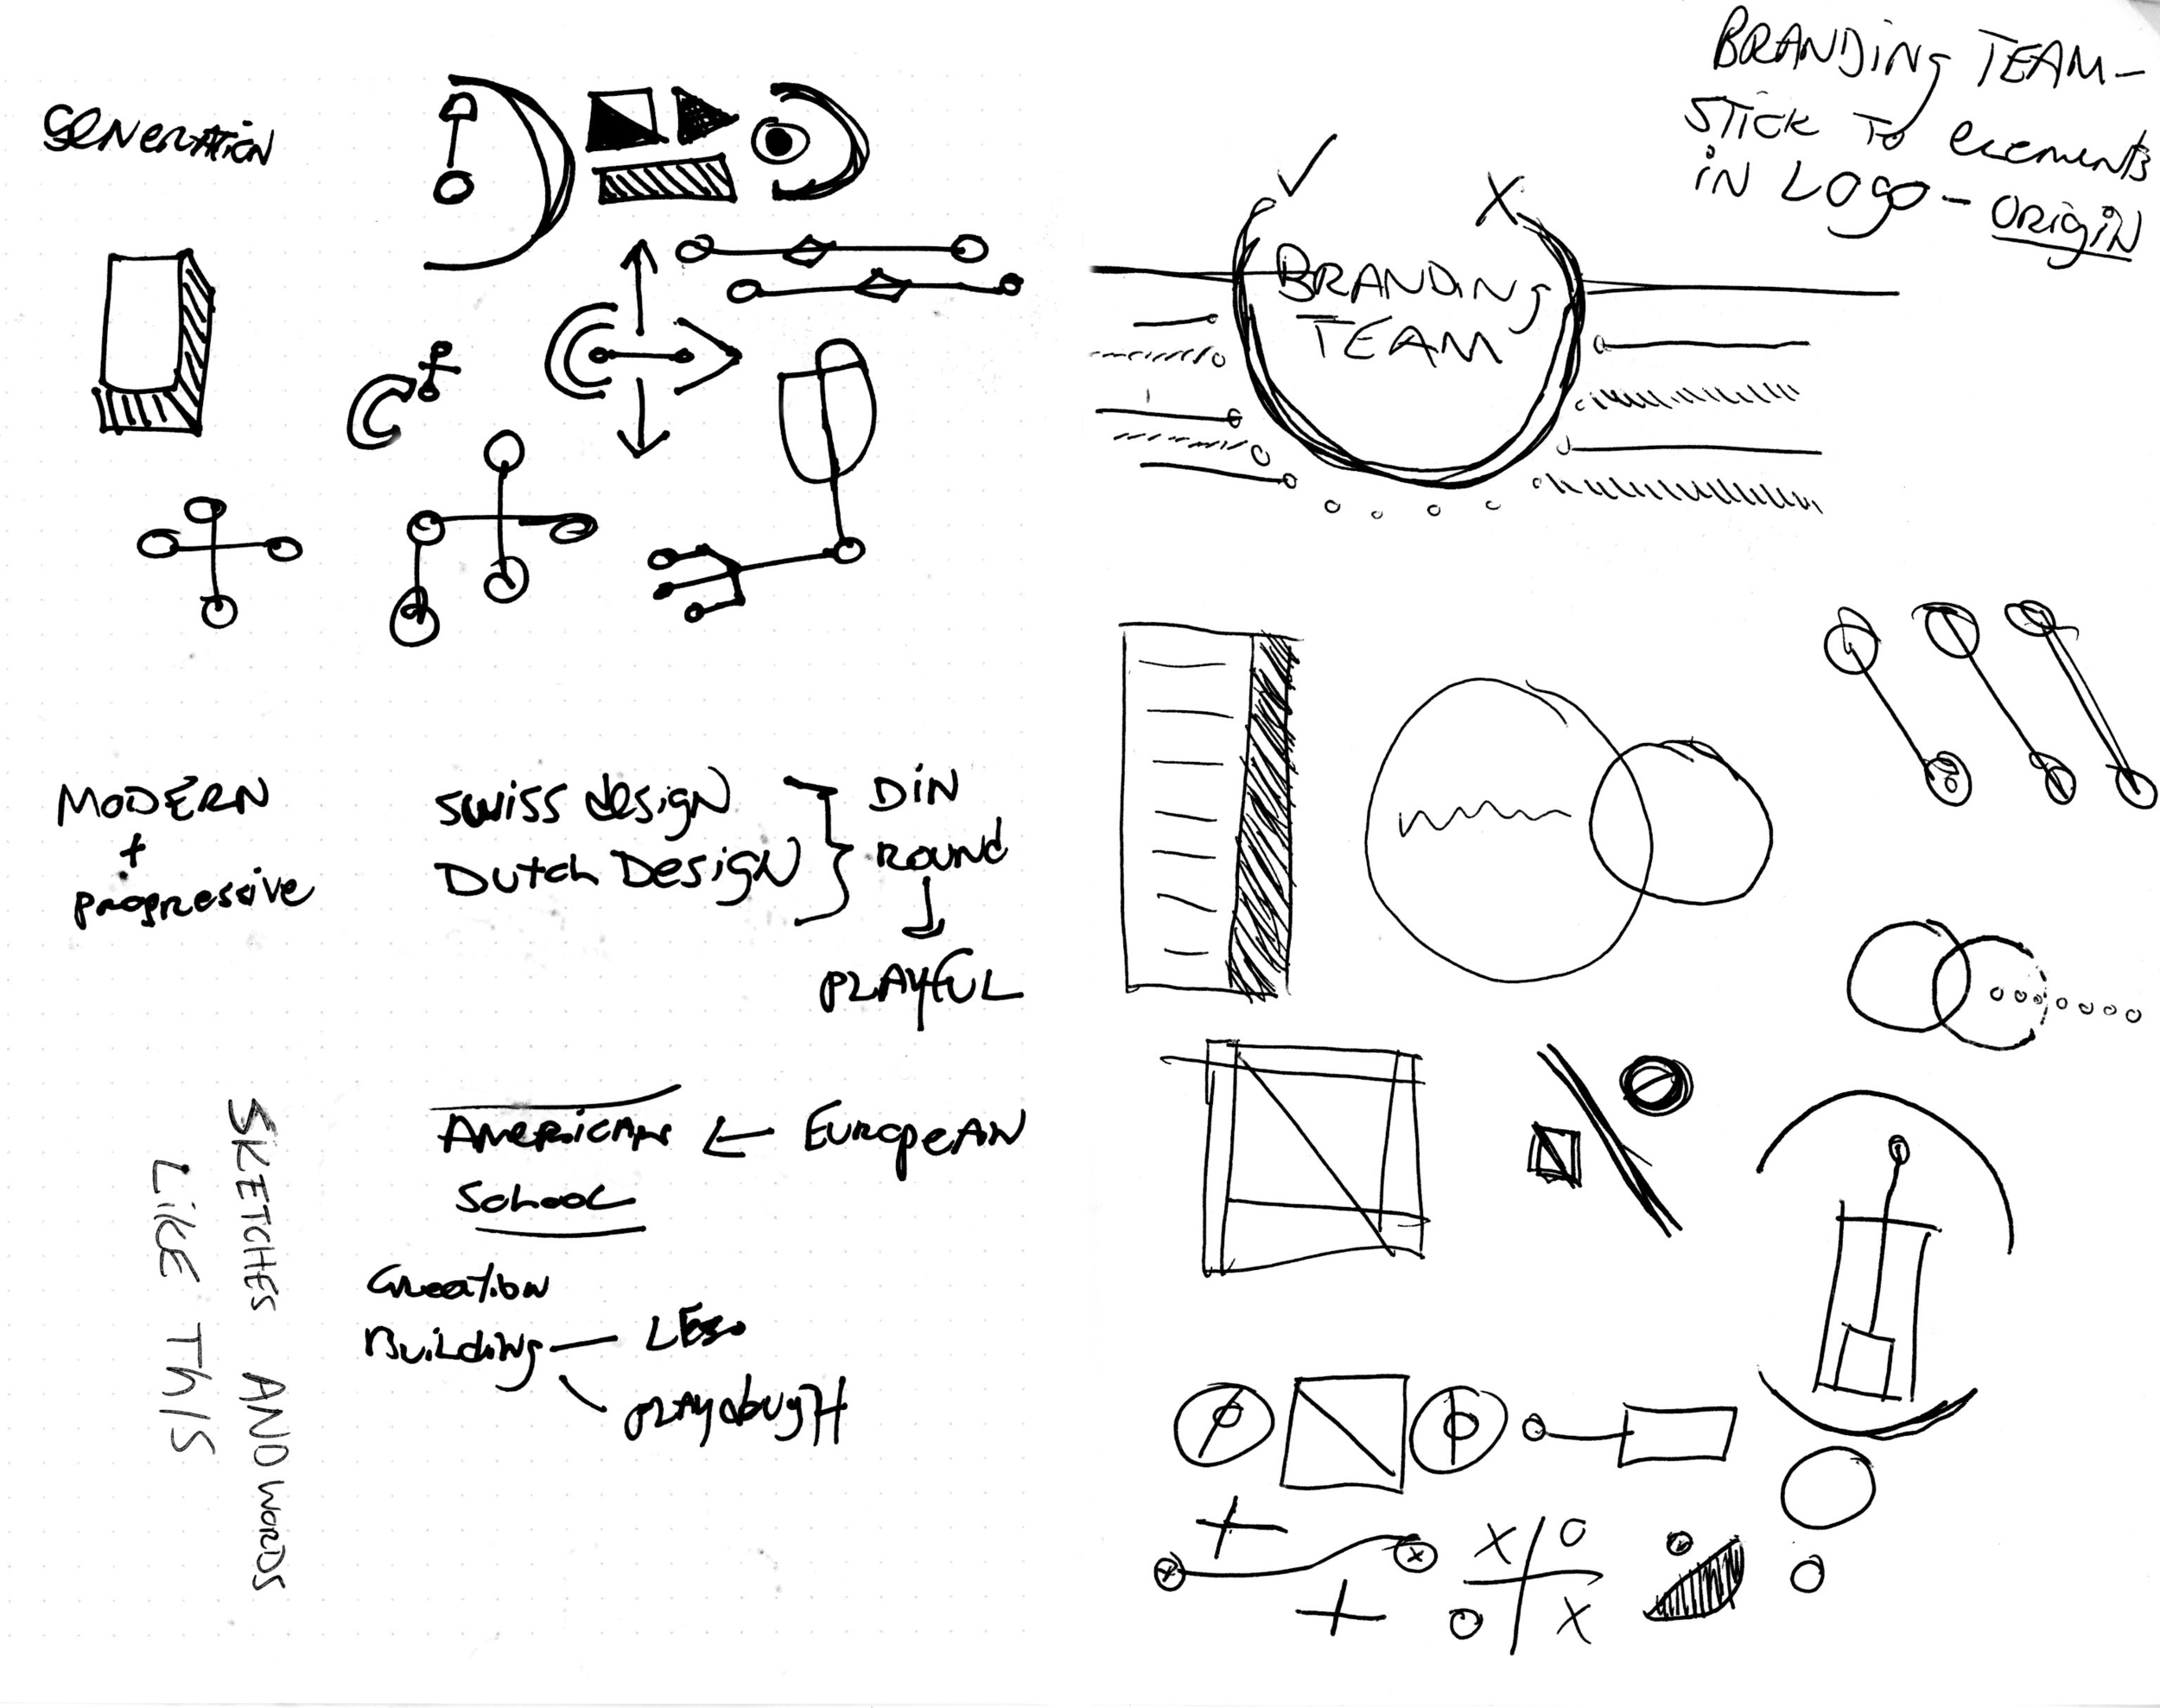 Generation
MODERN
+
progressive
swiss design
Dutch Design
DiN
ROUND
PLAYfUL
AMERiCAN ← EUROPEAN
School
Creation
Building — LEGO
PLAYdougH
SKETCHES AND WORDS
LiKE ThiS
BRANDiNg TEAM-
STiCK To elements
iN LOgo - ORigiN
✓ X
BRANDiNg
TEAM
X O
O X